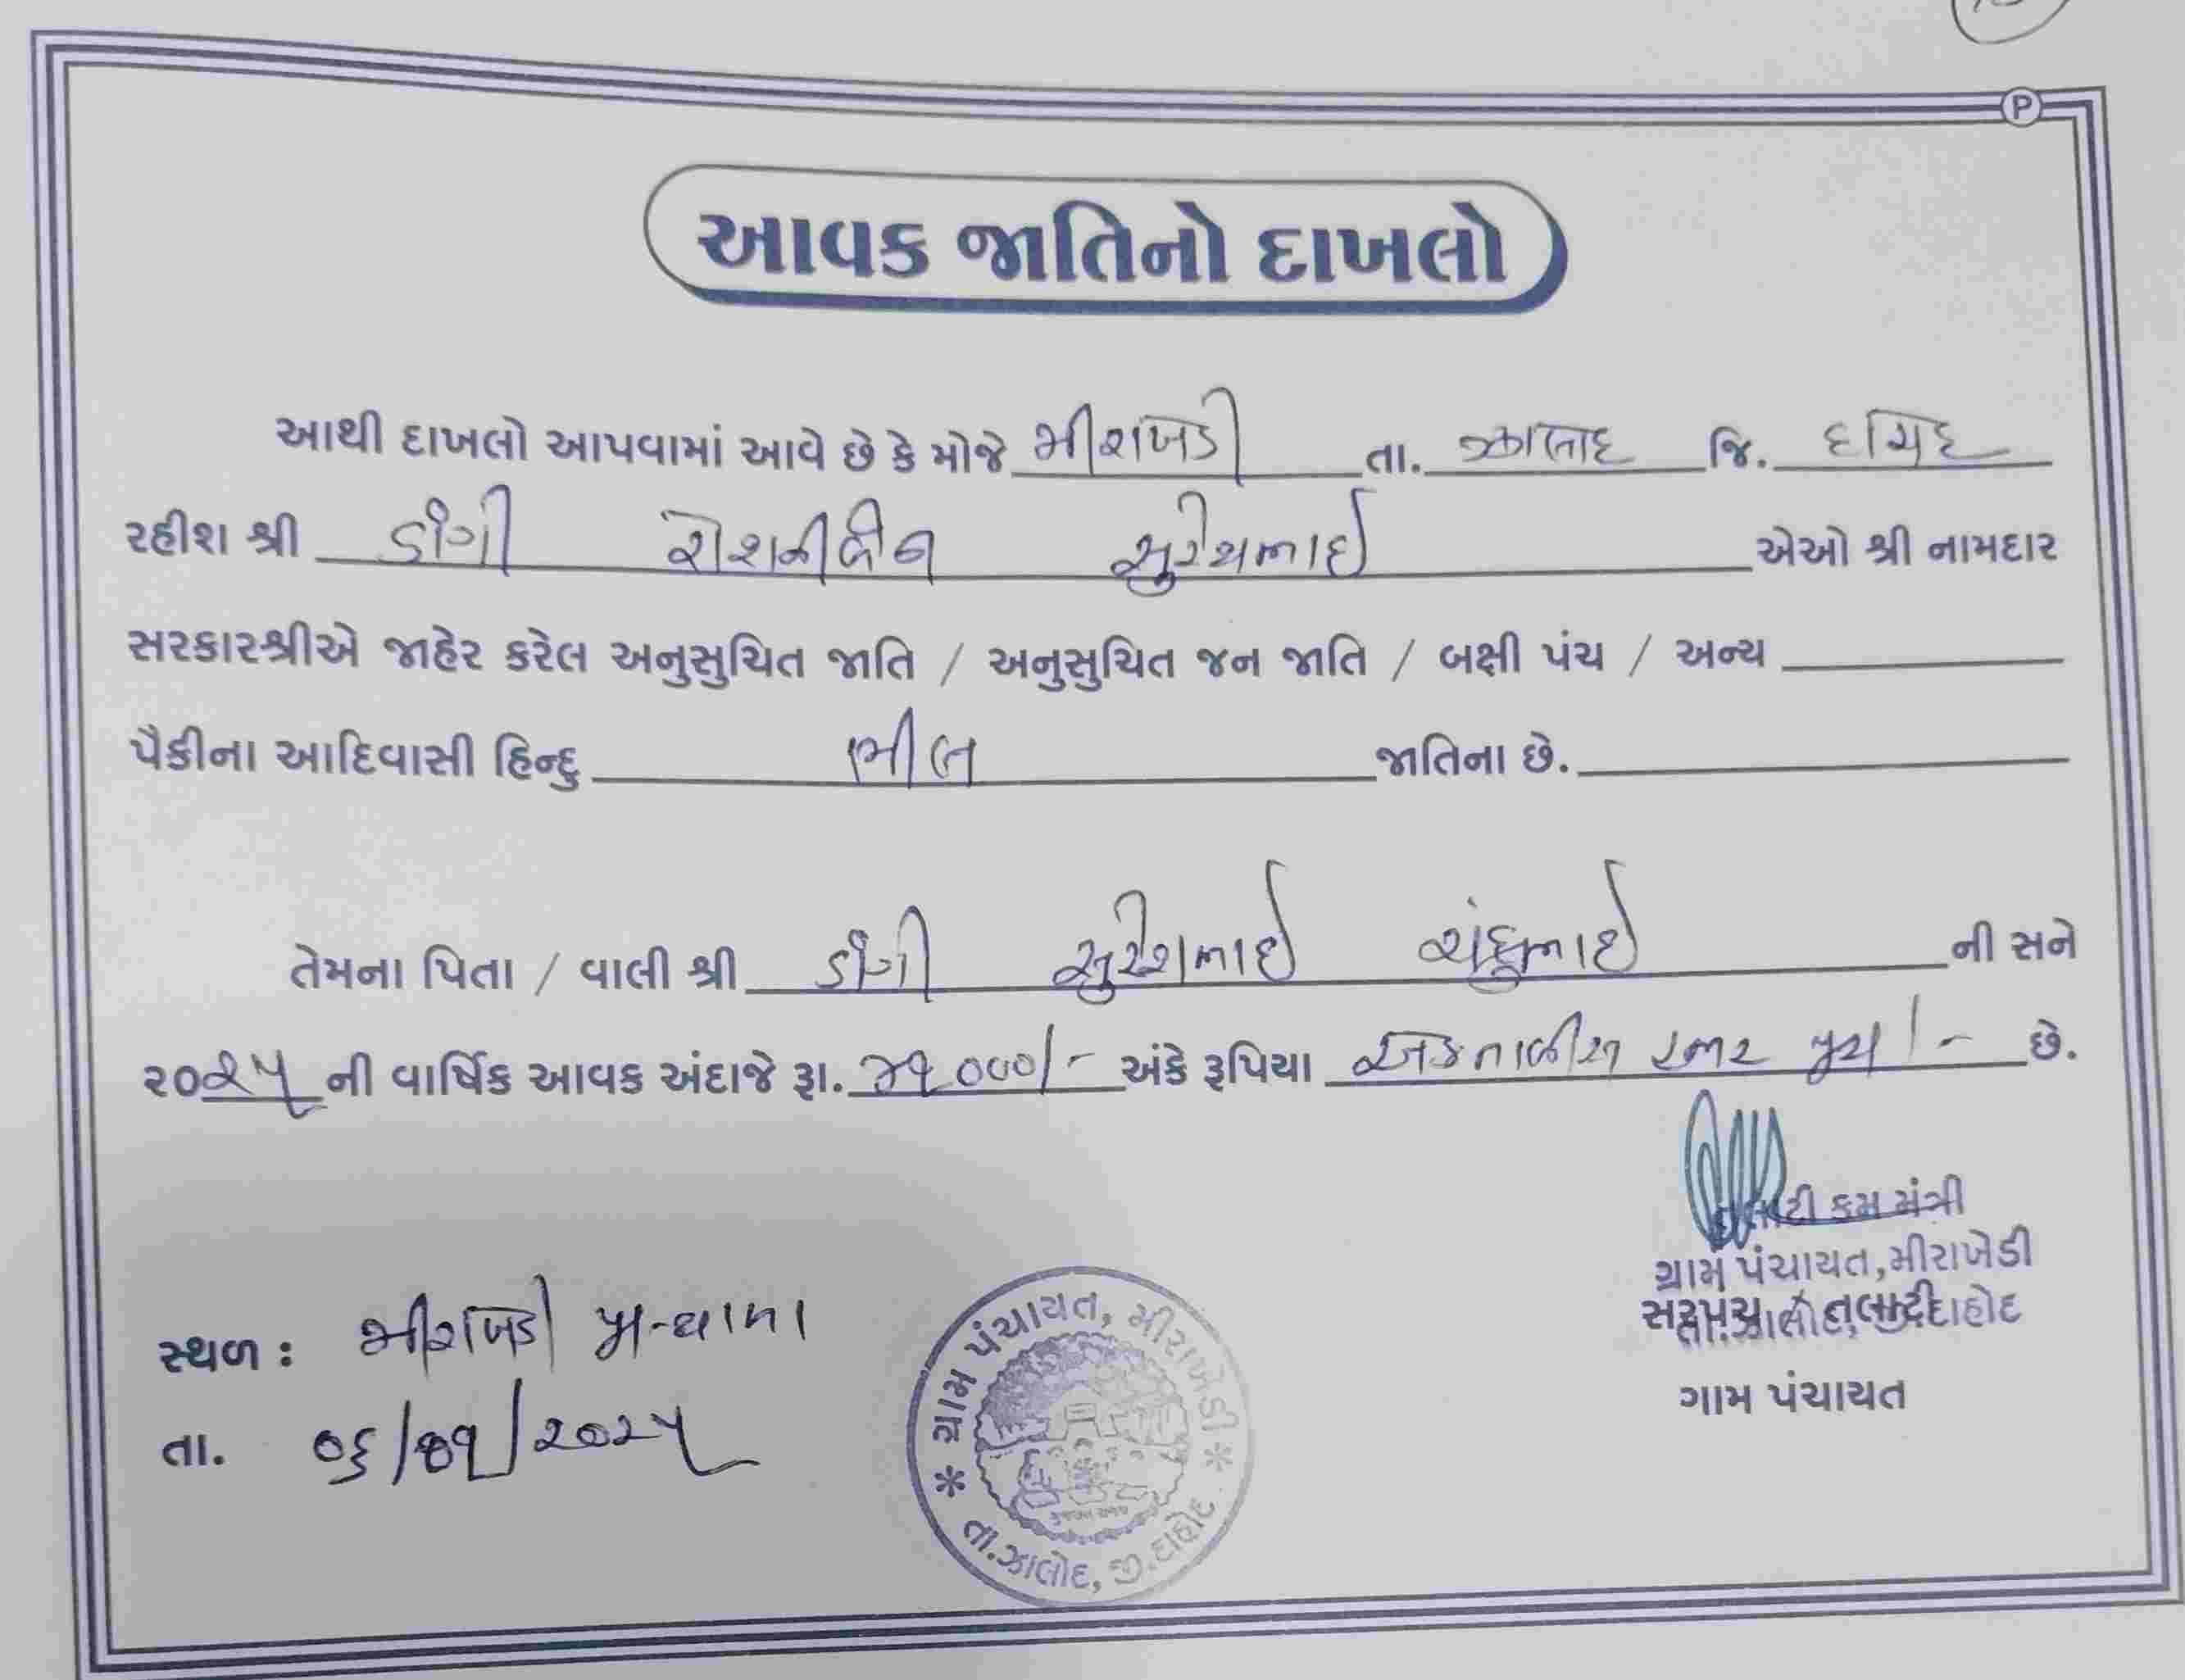 P
આવક જાતિનો દાખલો
આથી દાખલો આપવામાં આવે છે કે મોજે મીરાખેડી તા. ઝાલોદ જિ. દાહોદ
રહીશ શ્રી ડાંગી રોશનીબેન સુરેશભાઈ એઓ શ્રી નામદાર
સરકારશ્રીએ જાહેર કરેલ અનુસુચિત જાતિ / અનુસુચિત જન જાતિ / બક્ષી પંચ / અન્ય
પૈકીના આદિવાસી હિન્દુ ભીલ જાતિના છે.
તેમના પિતા / વાલી શ્રી ડાંગી સુરેશભાઈ ચંદુભાઈ ની સને
૨૦૨૫ ની વાર્ષિક આવક અંદાજે રૂા. ૪૧૦૦૦/- અંકે રૂપિયા એકતાળીસ હજાર પુરા/- છે.
તલાટી કમ મંત્રી
ગ્રામ પંચાયત, મીરાખેડી
સરપંચ / તલાટી
તા. ઝાલોદ, જી. દાહોદ
ગામ પંચાયત
સ્થળ : મીરાખેડી
તા. ૦૬/૦૧/૨૦૨૫
ગ્રામ પંચાયત, મીરાખેડી
તા. ઝાલોદ, જી. દાહોદ